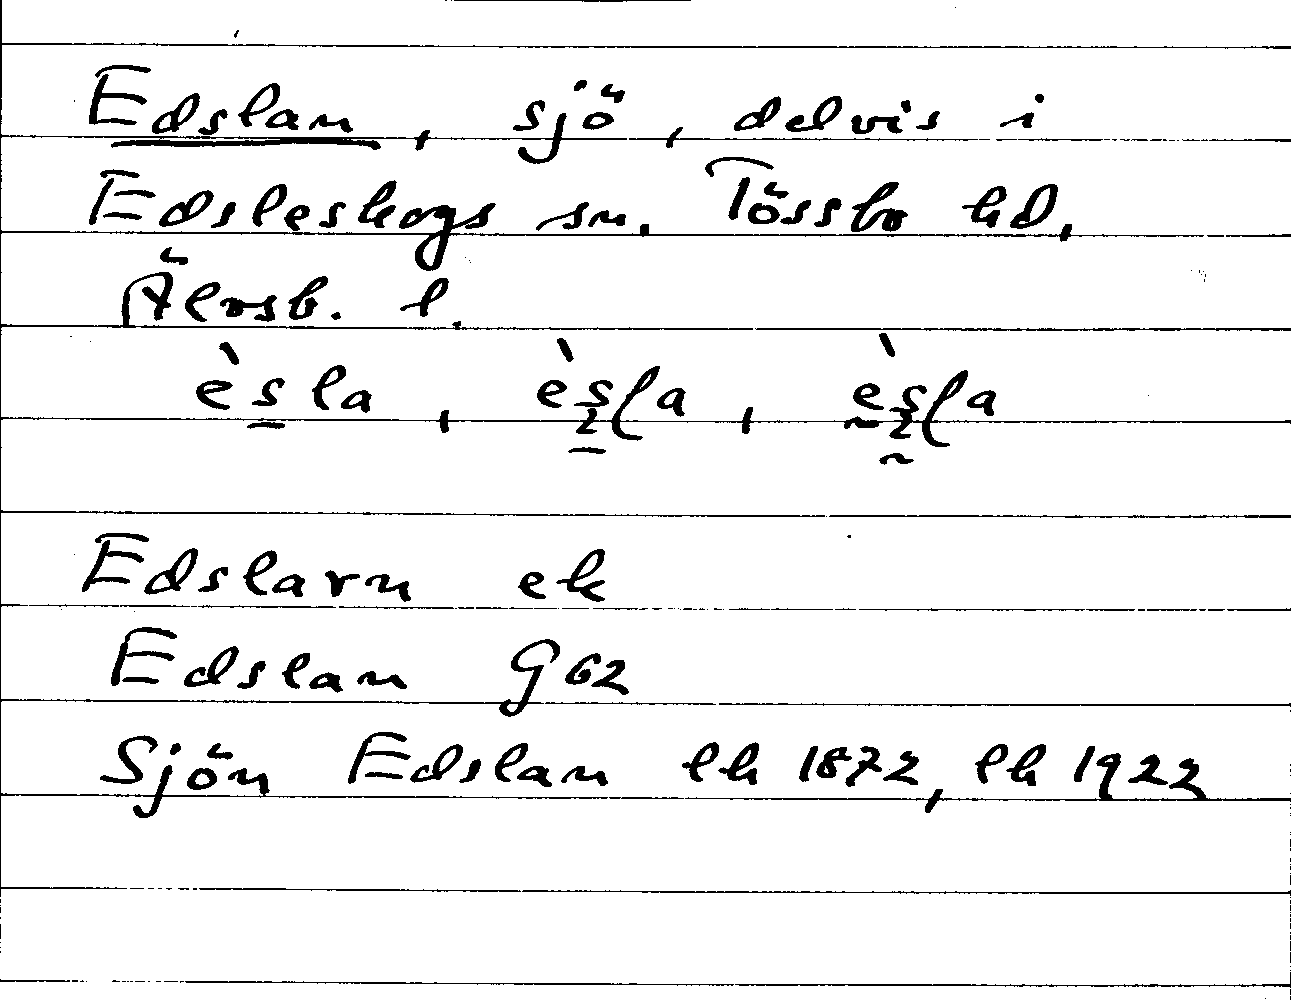 Edslan, sjö, delvis i
Edsleskogs sn. Tössbo hd,
Älvsb. l.
èsla, èsla, èsla
Edslarn ek
Edslan G62
Sjön Edslan lk 1872, lk 1922